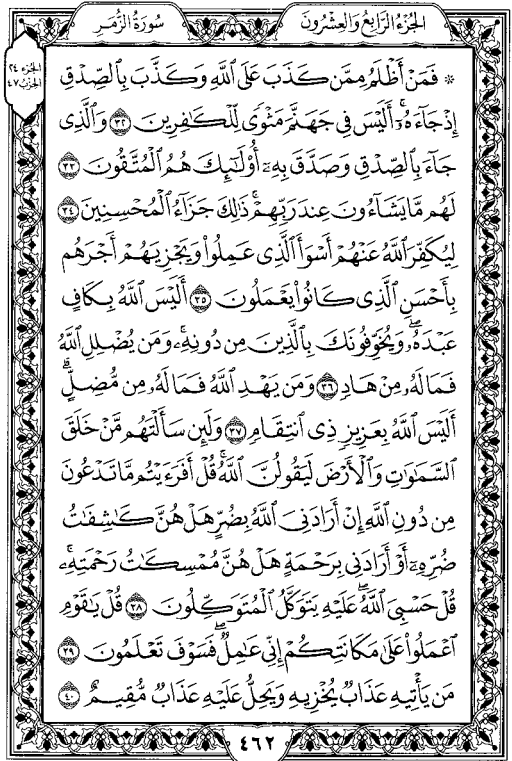 سُورَةُ الزُّمَر
الجُزْءُ الرَّابِعُ وَالعِشْرُونَ
الجزء ٢٤
الحزب ٤٧
* فَمَنْ أَظْلَمُ مِمَّن كَذَبَ عَلَى اللَّهِ وَكَذَّبَ بِالصِّدْقِ
إِذْ جَاءَهُۥٓ ۚ أَلَيْسَ فِي جَهَنَّمَ مَثْوًى لِّلْكَافِرِينَ ٣٢ وَالَّذِي
جَاءَ بِالصِّدْقِ وَصَدَّقَ بِهِۦٓ أُوْلَٰٓئِكَ هُمُ الْمُتَّقُونَ ٣٣
لَهُم مَّا يَشَاءُونَ عِندَ رَبِّهِمْ ۚ ذَٰلِكَ جَزَاءُ الْمُحْسِنِينَ ٣٤
لِيُكَفِّرَ اللَّهُ عَنْهُمْ أَسْوَأَ الَّذِي عَمِلُواْ وَيَجْزِيَهُمْ أَجْرَهُم
بِأَحْسَنِ الَّذِي كَانُواْ يَعْمَلُونَ ٣٥ أَلَيْسَ اللَّهُ بِكَافٍ
عَبْدَهُۥ ۖ وَيُخَوِّفُونَكَ بِالَّذِينَ مِن دُونِهِۦ ۚ وَمَن يُضْلِلِ اللَّهُ
فَمَا لَهُۥ مِنْ هَادٍ ٣٦ وَمَن يَهْدِ اللَّهُ فَمَا لَهُۥ مِن مُّضِلٍّ ۗ
أَلَيْسَ اللَّهُ بِعَزِيزٍ ذِي انتِقَامٍ ٣٧ وَلَئِن سَأَلْتَهُم مَّنْ خَلَقَ
السَّمَٰوَٰتِ وَالْأَرْضَ لَيَقُولُنَّ اللَّهُ ۚ قُلْ أَفَرَءَيْتُم مَّا تَدْعُونَ
مِن دُونِ اللَّهِ إِنْ أَرَادَنِيَ اللَّهُ بِضُرٍّ هَلْ هُنَّ كَٰشِفَٰتُ
ضُرِّهِۦٓ أَوْ أَرَادَنِي بِرَحْمَةٍ هَلْ هُنَّ مُمْسِكَٰتُ رَحْمَتِهِۦ ۚ
قُلْ حَسْبِيَ اللَّهُ ۖ عَلَيْهِ يَتَوَكَّلُ الْمُتَوَكِّلُونَ ٣٨ قُلْ يَٰقَوْمِ
اعْمَلُواْ عَلَىٰ مَكَانَتِكُمْ إِنِّي عَٰمِلٌ ۖ فَسَوْفَ تَعْلَمُونَ ٣٩
مَن يَأْتِيهِ عَذَابٌ يُخْزِيهِ وَيَحِلُّ عَلَيْهِ عَذَابٌ مُّقِيمٌ ٤٠
٤٦٢